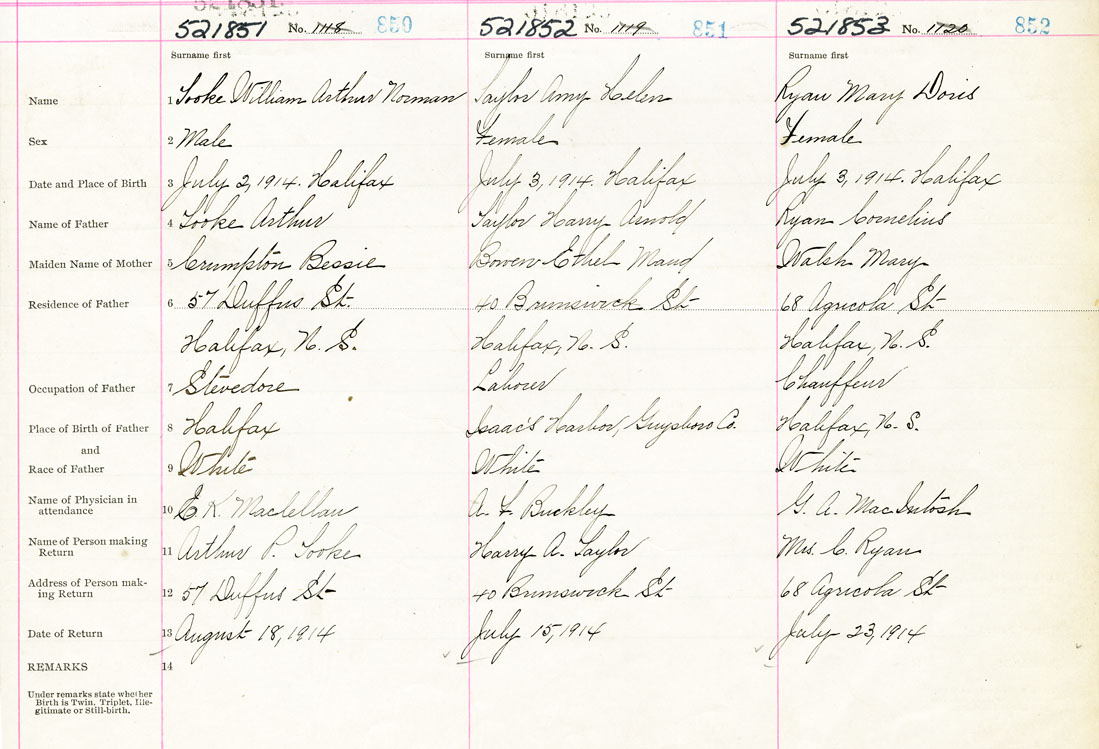 521851 No. 1118 850 521852 No. 1119 851 521853 No. 1120 852
Surname first Surname first Surname first
Name 1 Tooke William Arthur Norman Taylor Amy Helen Ryan Mary Doris
Sex 2 Male Female Female
Date and Place of Birth 3 July 2, 1914. Halifax July 3, 1914. Halifax July 3, 1914. Halifax
Name of Father 4 Tooke Arthur Taylor Harry Arnold Ryan Cornelius
Maiden Name of Mother 5 Crumpton Bessie Bowen Ethel Maud Walsh Mary
Residence of Father 6 57 Duffus St. 40 Brunswick St 68 Agricola St
Halifax, N. S. Halifax, N. S. Halifax, N. S.
Occupation of Father 7 Stevedore Labourer Chauffeur
Place of Birth of Father 8 Halifax Isaac's Harbor, Guysboro Co. Halifax, N. S.
and
Race of Father 9 White White White
Name of Physician in
attendance 10 E K. Maclellan A. F. Buckley G. A. MacIntosh
Name of Person making
Return 11 Arthur P. Tooke Harry A. Taylor Mrs. C. Ryan
Address of Person mak-
ing Return 12 57 Duffus St 40 Brunswick St 68 Agricola St
Date of Return 13 August 18, 1914 July 15, 1914 July 23, 1914
REMARKS 14
Under remarks state whether
Birth is Twin, Triplet, Ille-
gitimate or Still-birth.